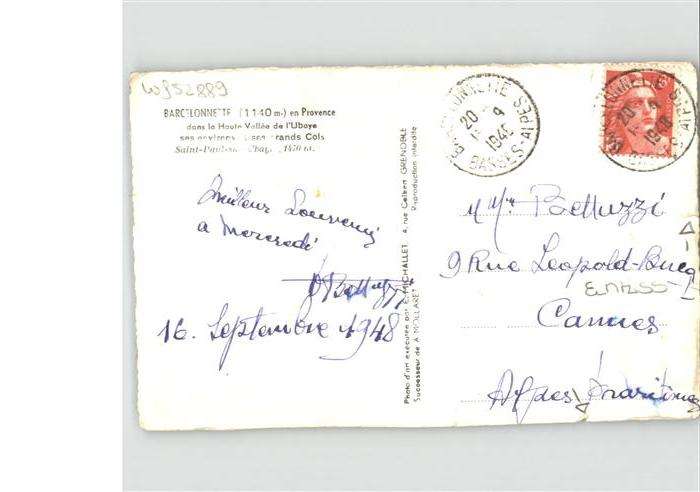 W852889
BARCELONNETTE (1140 m.) en Provence
dans la Haute Vallée de l'Ubaye
ses environs ses Grands Cols
Saint-Paul-sur-Ubaye, 1470 m.
Meilleur Souvenir
a Mercredi
Bettuzzi
16. Septembre 1948
Photo d'art exécutée par E. MICHALLET, 4, rue Colbert GRENOBLE
Successeur de A. MOLLARET Reproduction interdite
BARCELONNETTE
20
1948
BASSES-ALPES
BARCELONNETTE
20
1948
BASSES-ALPES
Bettuzzi
9 Rue Leopold-Bucq
Cannes
Alpes Maritimes